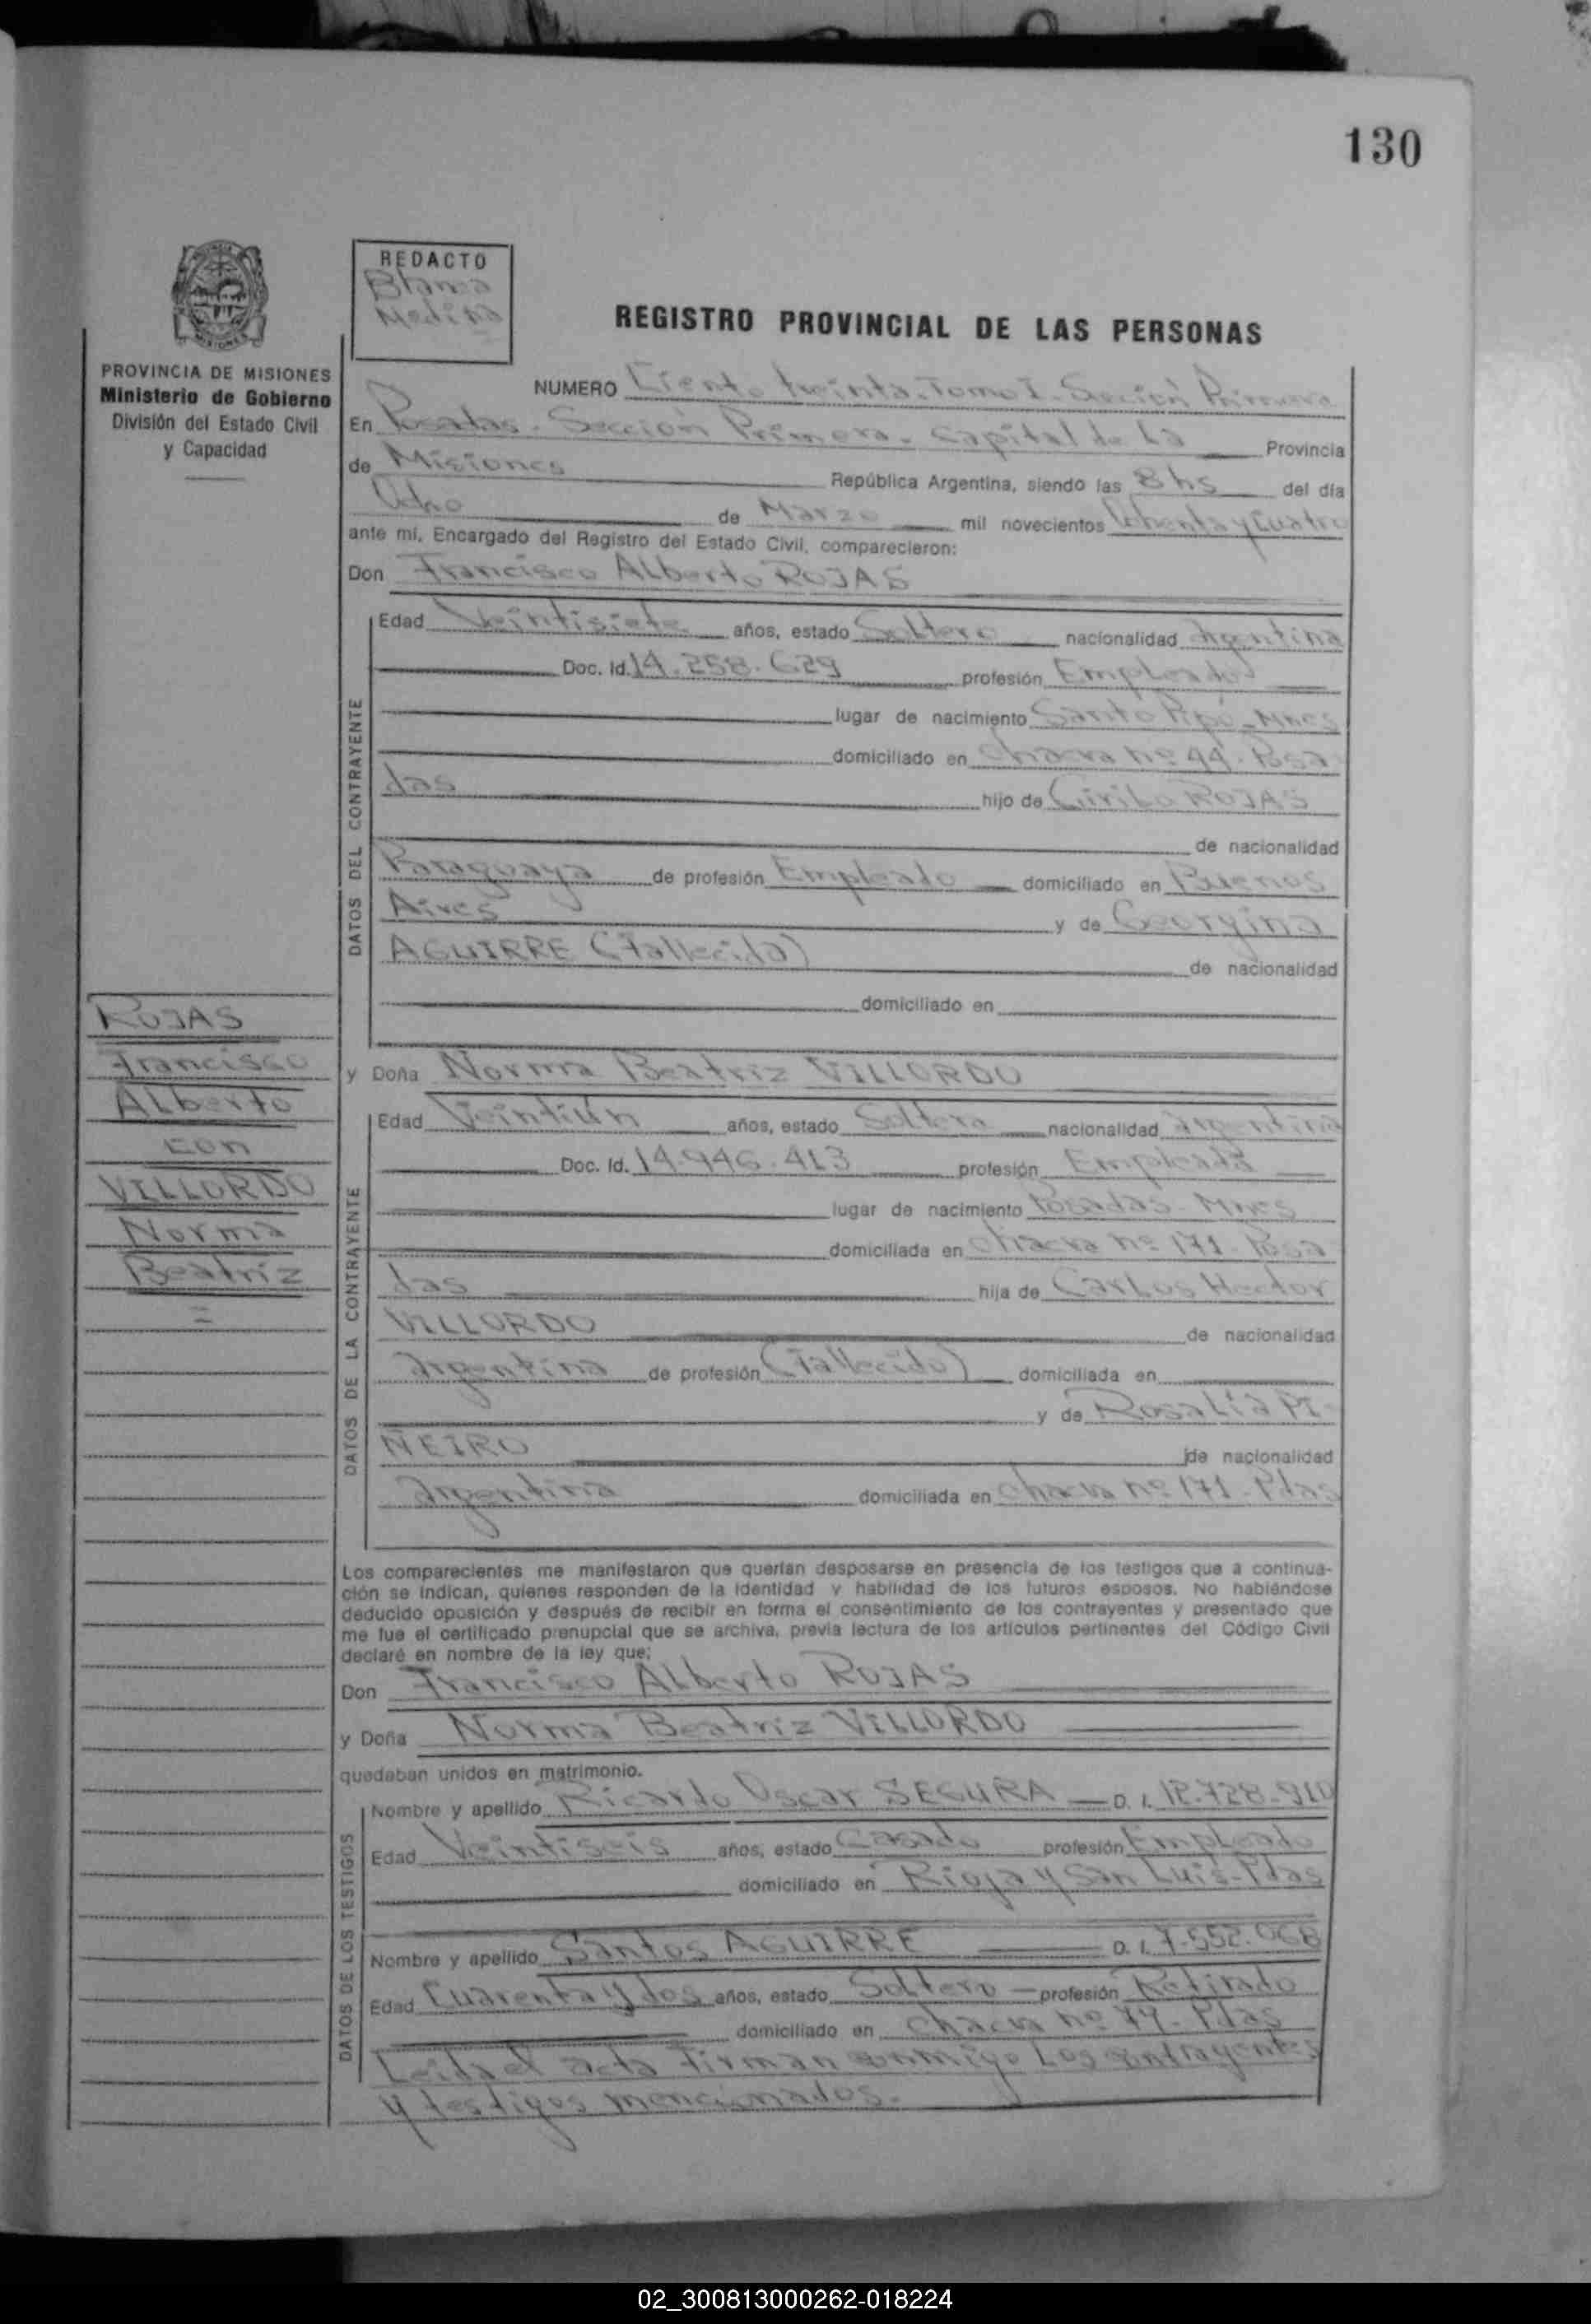 130
REDACTO
Blanca
Medina
REGISTRO PROVINCIAL DE LAS PERSONAS
PROVINCIA DE MISIONES
Ministerio de Gobierno
División del Estado Civil
y Capacidad
NUMERO Ciento treinta. Tomo I. Sección Primera
En Posadas. Sección Primera. Capital de La Provincia
de Misiones República Argentina, siendo las 8 hs del día
Ocho de Marzo mil novecientos Ochenta y Cuatro
ante mí, Encargado del Registro del Estado Civil, comparecieron:
Don Francisco Alberto ROJAS
DATOS DEL CONTRAYENTE
Edad Veintisiete años, estado Soltero nacionalidad Argentina
Doc. Id. 14.258.629 profesión Empleado
lugar de nacimiento Santo Pipó - Mnes
domiciliado en chacra nº 44. Posa
das hijo de Cirilo ROJAS
de nacionalidad
Paraguaya de profesión Empleado domiciliado en Buenos
Aires y de Georgina
AGUIRRE (Fallecida) de nacionalidad
domiciliado en
ROJAS
Francisco
Alberto
con
VILLORDO
Norma
Beatriz
=
y Doña Norma Beatriz VILLORDO
DATOS DE LA CONTRAYENTE
Edad Veintiún años, estado Soltera nacionalidad Argentina
Doc. Id. 14.946.413 profesión Empleada
lugar de nacimiento Posadas - Mnes
domiciliada en chacra nº 171. Posa
das hija de Carlos Hector
VILLORDO de nacionalidad
Argentina de profesión (Fallecido) domiciliada en
y de Rosalía PI-
ÑEIRO de nacionalidad
Argentina domiciliada en chacra nº 171 - Pdas
Los comparecientes me manifestaron que querían desposarse en presencia de los testigos que a continua-
ción se indican, quienes responden de la identidad y habilidad de los futuros esposos. No habiéndose
deducido oposición y después de recibir en forma el consentimiento de los contrayentes y presentado que
me fue el certificado prenupcial que se archiva, previa lectura de los artículos pertinentes del Código Civil
declaré en nombre de la ley que:
Don Francisco Alberto ROJAS
y Doña Norma Beatriz VILLORDO
quedaban unidos en matrimonio.
DATOS DE LOS TESTIGOS
Nombre y apellido Ricardo Oscar SEGURA D. I. 12.728.910
Edad Veintiseis años, estado Casado profesión Empleado
domiciliado en Rioja y San Luis - Pdas
Nombre y apellido Santos AGUIRRE D. I. 7.552.068
Edad Cuarenta y dos años, estado Soltero profesión Retirado
domiciliado en chacra nº 44. Pdas
Leida el acta firman conmigo Los contrayentes
y testigos mencionados.
02_300813000262-018224